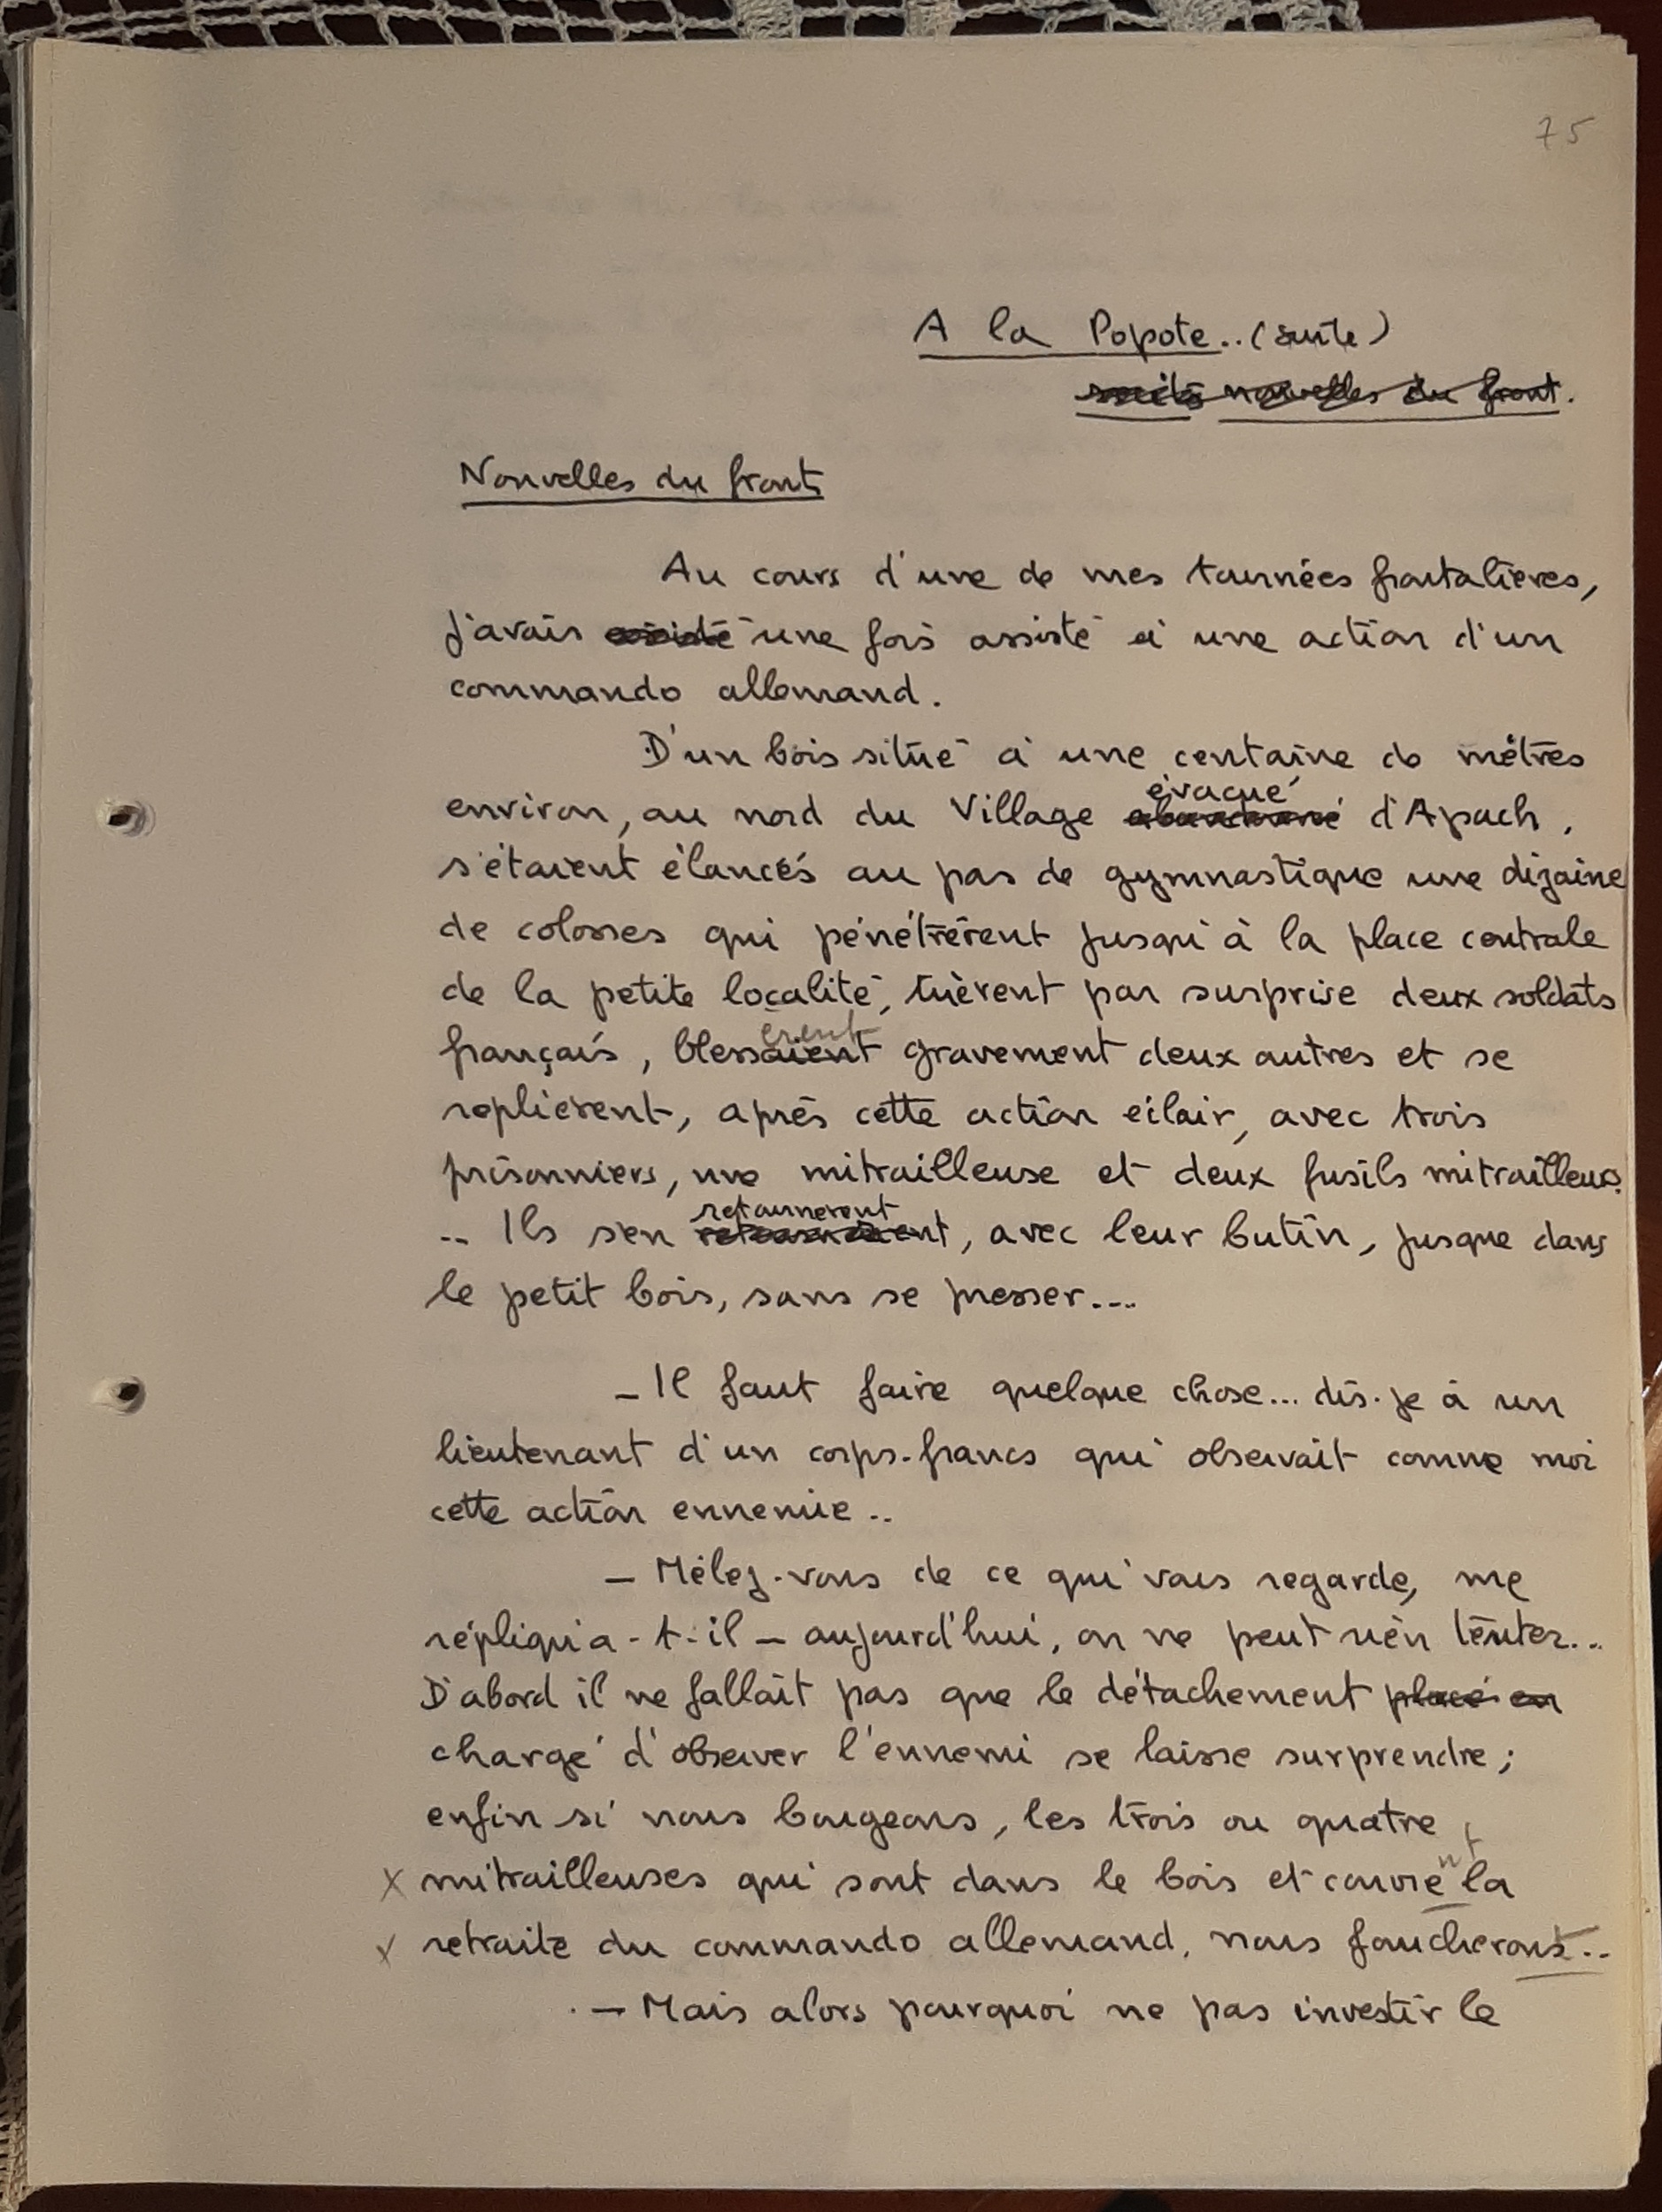 75
A la Popote..(suite)
suite nouvelles du front.
Nouvelles du front
Au cours d'une de mes tournées frontalières,
j'avais assisté une fois assisté à une action d'un
commando allemand.
D'un bois situé à une centaine de mètres
évacué
environ, au nord du Village abandonné d'Apach,
s'étaient élancés au pas de gymnastique une dizaine
de colosses qui pénétrèrent jusqu'à la place centrale
de la petite localité, tuèrent par surprise deux soldats
èrent
français, blessaient gravement deux autres et se
replièrent, après cette action éclair, avec trois
prisonniers, une mitrailleuse et deux fusils mitrailleurs.
retournèrent
.. Ils s'en retournaient, avec leur butin, jusque dans
le petit bois, sans se presser....
– Il faut faire quelque chose... dis-je à un
lieutenant d'un corps-francs qui observait comme moi
cette action ennemie..
– Mêlez-vous de ce qui vous regarde, me
répliqua-t-il – aujourd'hui, on ne peut rien tenter...
D'abord il ne fallait pas que le détachement placé en
chargé d'observer l'ennemi se laisse surprendre ;
enfin si nous bougeons, les trois ou quatre
nt
x mitrailleuses qui sont dans le bois et couvre la
x retraite du commando allemand, nous faucheront..
– Mais alors pourquoi ne pas investir le